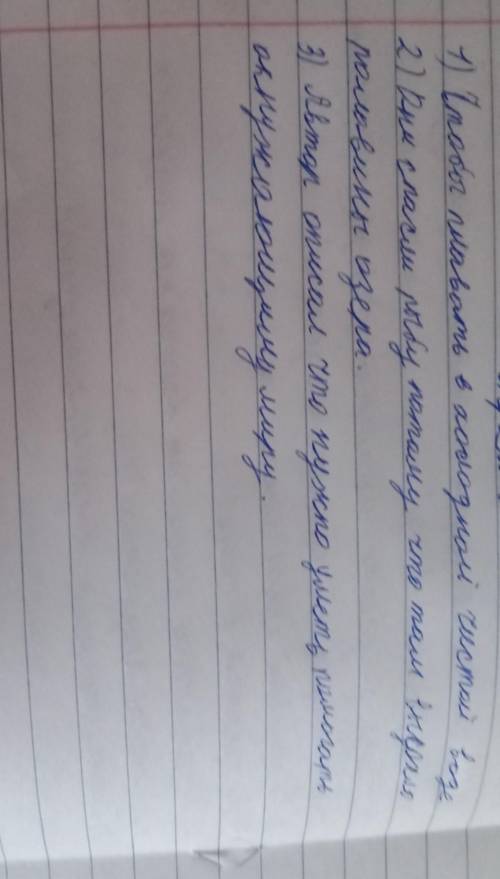 1) Чтобы плавать в холодной чистой воде
2) Они спасли рыбу потому что там
половины озера.
3) Автор описал что нужно уметь помогать
окружающему миру.